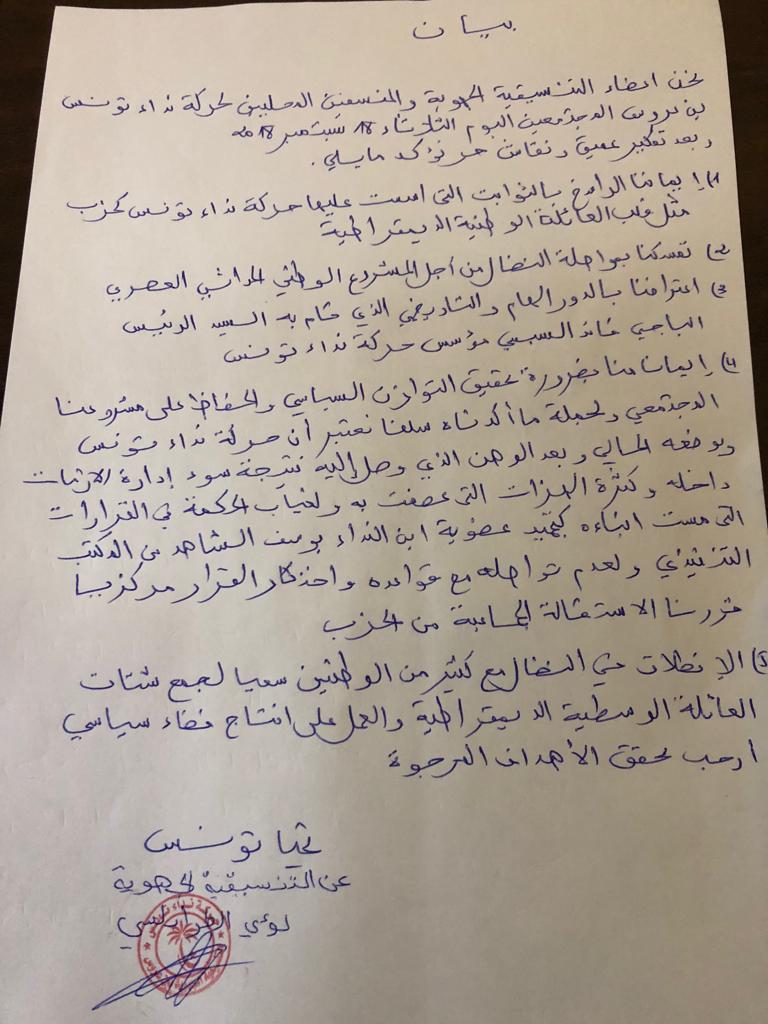 بيان
نحن اعضاء التنسيقية الجهوية والمنسقين المحليين لحركة نداء تونس
ببن عروس المجتمعين اليوم الثلاثاء 18 سبتمبر 2018
وبعد تفكير عميق ونقاش حر نؤكد مايلي.
1) إيماننا الراسخ بالثوابت التي اسست عليها حركة نداء تونس كحزب
مثل قلب العائلة الوطنية الديمقراطية
2) تمسكنا بمواصلة النضال من أجل المشروع الوطني الحداثي العصري
3) اعترافنا بالدور الهام والتاريخي الذي قام به السيد الرئيس
الباجي قائد السبسي مؤسس حركة نداء تونس
4) إيمانا منا بضرورة تحقيق التوازن السياسي والحفاظ على مشروعنا
المجتمعي ولجملة ما أكدناه سلفا نعتبر أن حركة نداء تونس
وبوضعه الحالي وبعد الوهن الذي وصل إليه نتيجة سوء إدارة الازمات
داخله وكثرة الهزات التي عصفت به ولغياب الحكمة في القرارات
التي مست ابناءه كتجميد عضوية ابن النداء يوسف الشاهد من المكتب
التنفيذي ولعدم تواصله مع قواعده واحتكار القرار مركزيا
قررنا الاستقالة الجماعية من الحزب
5) الانطلاق في النضال مع كثير من الوطنيين سعيا لجمع شتات
العائلة الوسطية الديمقراطية والعمل على انتاج فضاء سياسي
أرحب يحقق الأهداف المرجوة
تحيا تونس
عن التنسيقية الجهوية
لؤي الطرابلسي
حركة نداء تونس